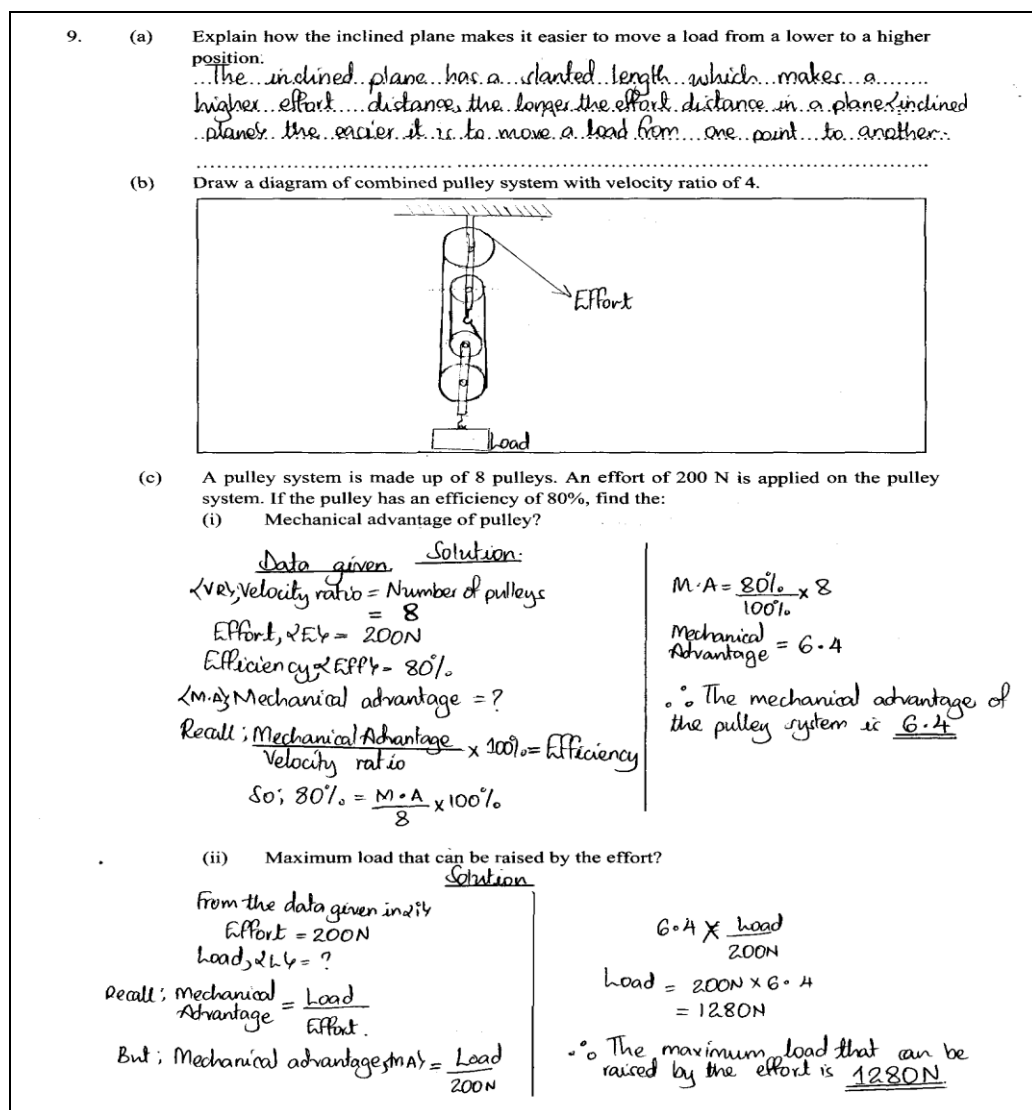 9. (a) Explain how the inclined plane makes it easier to move a load from a lower to a higher
position.
The inclined plane has a slanted length which makes a
higher effort distance, the longer the effort distance in a plane {inclined
plane} the easier it is to move a load from one point to another.
(b) Draw a diagram of combined pulley system with velocity ratio of 4.
Effort
Load
(c) A pulley system is made up of 8 pulleys. An effort of 200 N is applied on the pulley
system. If the pulley has an efficiency of 80%, find the:
(i) Mechanical advantage of pulley?
Solution.
Data given
{VR}, Velocity ratio = Number of pulleys
= 8
Effort, {E} = 200N
Efficiency, {Eff} = 80%
{M.A} Mechanical advantage = ?
Recall; Mechanical Advantage / Velocity ratio × 100% = Efficiency
So; 80% = M.A / 8 × 100%
M.A = 80% / 100% × 8
Mechanical Advantage = 6.4
∴ The mechanical advantage of
the pulley system is 6.4
(ii) Maximum load that can be raised by the effort?
Solution
From the data given in {i}
Effort = 200N
Load, {L} = ?
Recall; Mechanical Advantage = Load / Effort.
But; Mechanical advantage {MA} = Load / 200N
6.4 × Load / 200N
Load = 200N × 6.4
= 1280N
∴ The maximum load that can be
raised by the effort is 1280N